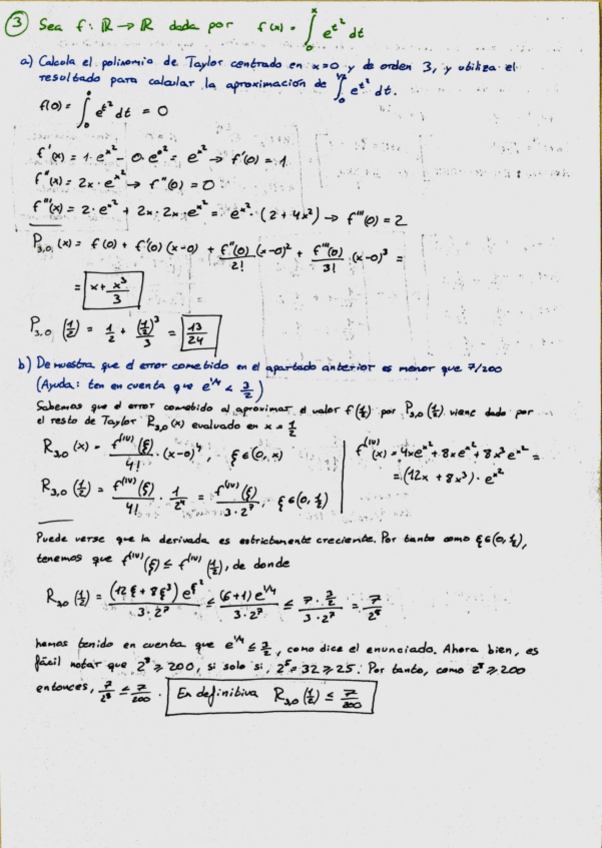 ③ Sea f: ℝ → ℝ dada por f(x) = ∫₀ˣ e^{t²} dt
a) Calcula el polinomio de Taylor centrado en x=0 y de orden 3, y utiliza el
resultado para calcular la aproximación de ∫₀^{1/2} e^{t²} dt.
f(0) = ∫₀⁰ e^{t²} dt = 0
f'(x) = 1·e^{x²} - 0·e^{0²} = e^{x²} → f'(0) = 1
f''(x) = 2x·e^{x²} → f''(0) = 0
f'''(x) = 2·e^{x²} + 2x·2x·e^{x²} = e^{x²}·(2+4x²) → f'''(0) = 2
P₃,₀(x) = f(0) + f'(0)(x-0) + f''(0)/2! (x-0)² + f'''(0)/3! (x-0)³ =
= x + x³/3
P₃,₀(1/2) = 1/2 + (1/2)³/3 = 13/24
b) Demuestra que el error cometido en el apartado anterior es menor que 7/200
(Ayuda: ten en cuenta que e^{1/4} < 3/2)
Sabemos que el error cometido al aproximar el valor f(1/2) por P₃,₀(1/2) viene dado por
el resto de Taylor R₃,₀(x) evaluado en x = 1/2
R₃,₀(x) = f^{(IV)}(ξ)/4! · (x-0)⁴, ξ∈(0,x)
R₃,₀(1/2) = f^{(IV)}(ξ)/4! · 1/2⁴ = f^{(IV)}(ξ)/(3·2⁷), ξ∈(0,1/2)
f^{(IV)}(x) = 4xe^{x²} + 8xe^{x²} + 8x³e^{x²} =
= (12x + 8x³)·e^{x²}
Puede verse que la derivada es estrictamente creciente. Por tanto como ξ∈(0,1/2),
tenemos que f^{(IV)}(ξ) ≤ f^{(IV)}(1/2), de donde
R₃,₀(1/2) = (12ξ + 8ξ³)e^{ξ²}/(3·2⁷) ≤ (6+1)e^{1/4}/(3·2⁷) ≤ 7·3/2/(3·2⁷) = 7/2⁸
hemos tenido en cuenta que e^{1/4} ≤ 3/2, como dice el enunciado. Ahora bien, es
fácil notar que 2⁸ ≥ 200, si solo si, 2⁵ = 32 ≥ 25. Por tanto, como 2⁸ ≥ 200
entonces, 7/2⁸ ≤ 7/200. En definitiva R₃,₀(1/2) ≤ 7/200